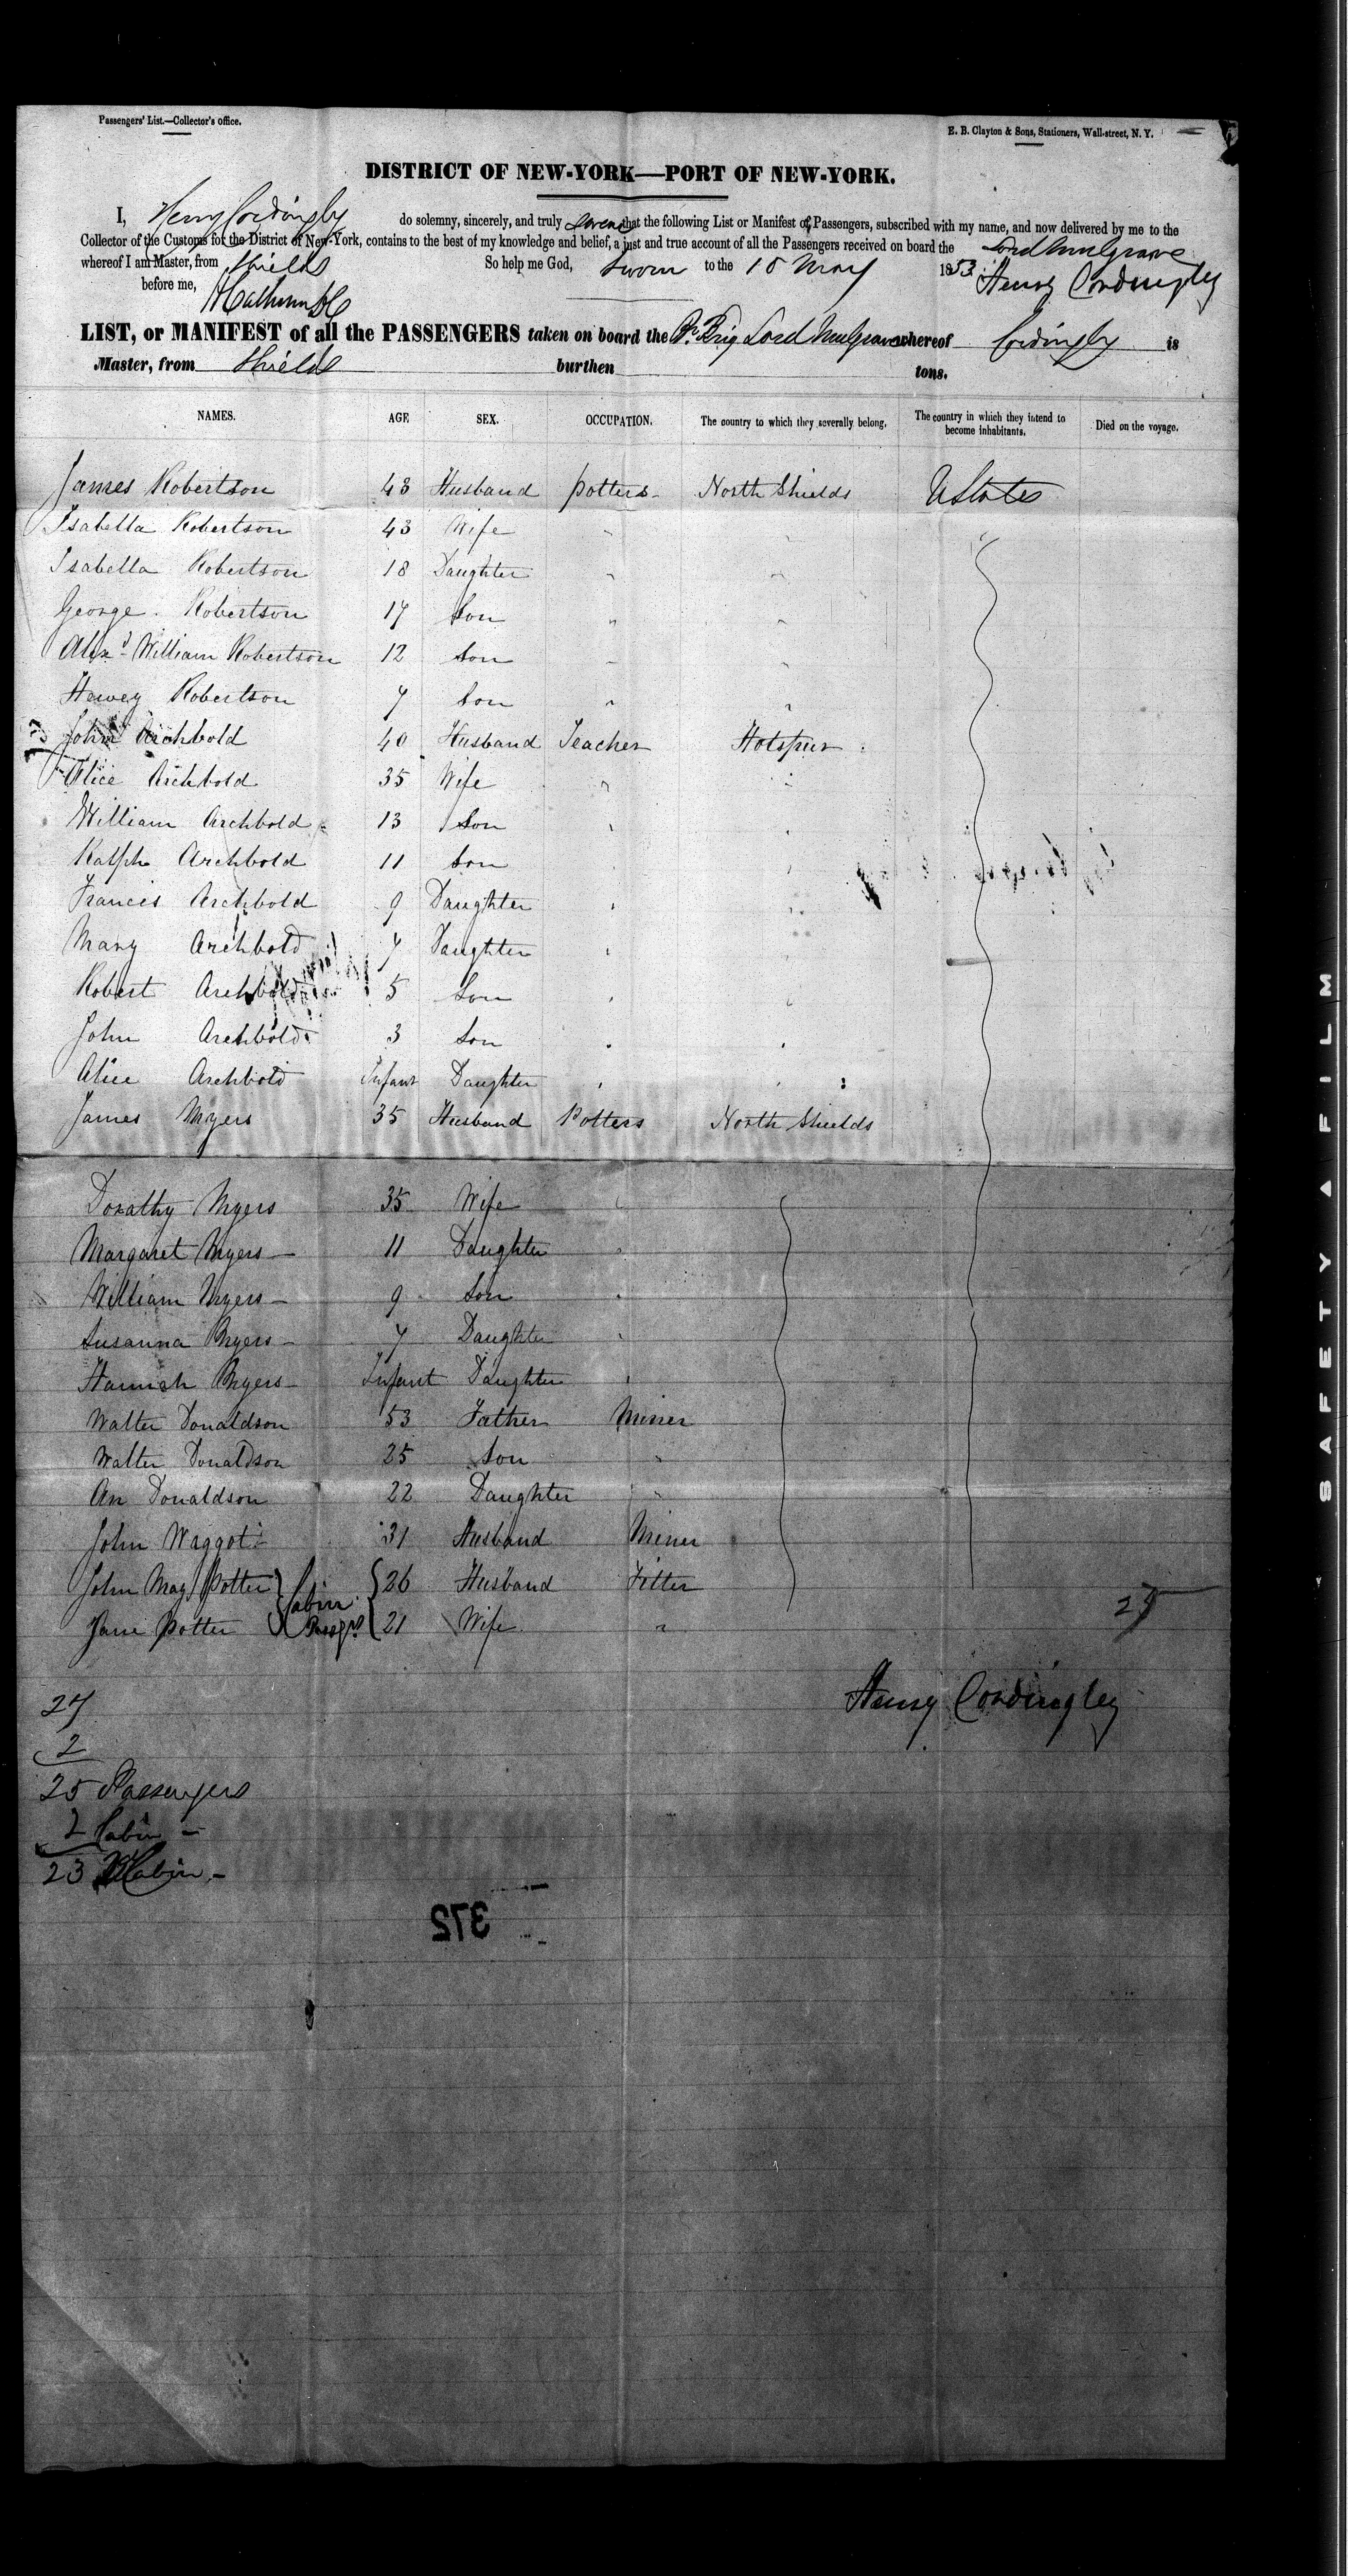 Passengers' List.—Collector's Office.
E. B. Clayton & Sons, Stationers, Wall-street, N. Y.
DISTRICT OF NEW-YORK—PORT OF NEW-YORK.
I, Henry Cordingley do solemny, sincerely, and truly swear that the following List or Manifest of Passengers, subscribed with my name, and now delivered by me to the
Collector of the Customs for the District of New-York, contains to the best of my knowledge and belief, a just and true account of all the Passengers received on board the Lord Mulgrave
whereof I am Master, from Shields So help me God, Sworn to the 18 May 1853. Henry Cordingley
before me,
LIST, or MANIFEST of all the PASSENGERS taken on board the Br. Brig Lord Mulgrave whereof Cordingly is
Master, from Shields burthen tons.
NAMES. AGE SEX. OCCUPATION. The country to which they severally belong. The country in which they intend to become inhabitants. Died on the voyage.
James Robertson 43 Husband potters North Shields UStates
Isabella Robertson 43 Wife "
Isabella Robertson 18 Daughter " "
George Robertson 17 Son " "
Alexr William Robertson 12 Son " "
Hervey Robertson 7 Son " "
John Archbold 40 Husband Teacher Hotspur
Alice Archbold 35 Wife " "
William Archbold 13 Son " "
Ralph Archbold 11 Son "
Francis Archbold 9 Daughter " "
Mary Archbold 7 Daughter " "
Robert Archbold 5 Son " "
John Archbold 3 Son " "
Alice Archbold Infant Daughter " "
James Myers 35 Husband Potters North Shields
Dorathy Myers 35 Wife "
Margaret Myers 11 Daughter "
William Myers 9 Son "
Susanna Myers 7 Daughter "
Hannah Myers Infant Daughter "
Walter Donaldson 53 Father Miner
Walter Donaldson 25 Son "
An Donaldson 22 Daughter "
John Waggot 31 Husband Miner
John May Potter } Cabin { 26 Husband Fitter
Jane Potter } Passgrs { 21 Wife "
27
Henry Cordingley
27
2
25 Passengers
2 Cabin
23
372
SAFETY FILM